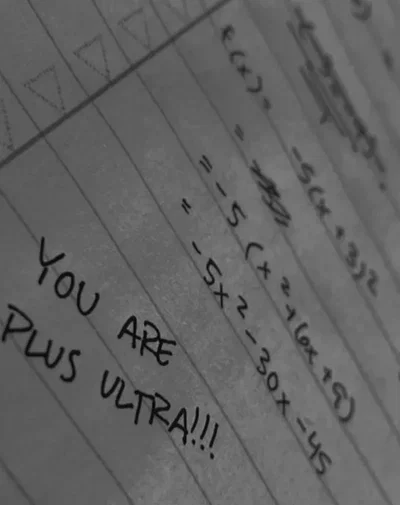 -5(x+3)²
=
= -5(x²+6x+9)
= -5x²-30x-45
YOU ARE
PLUS ULTRA!!!